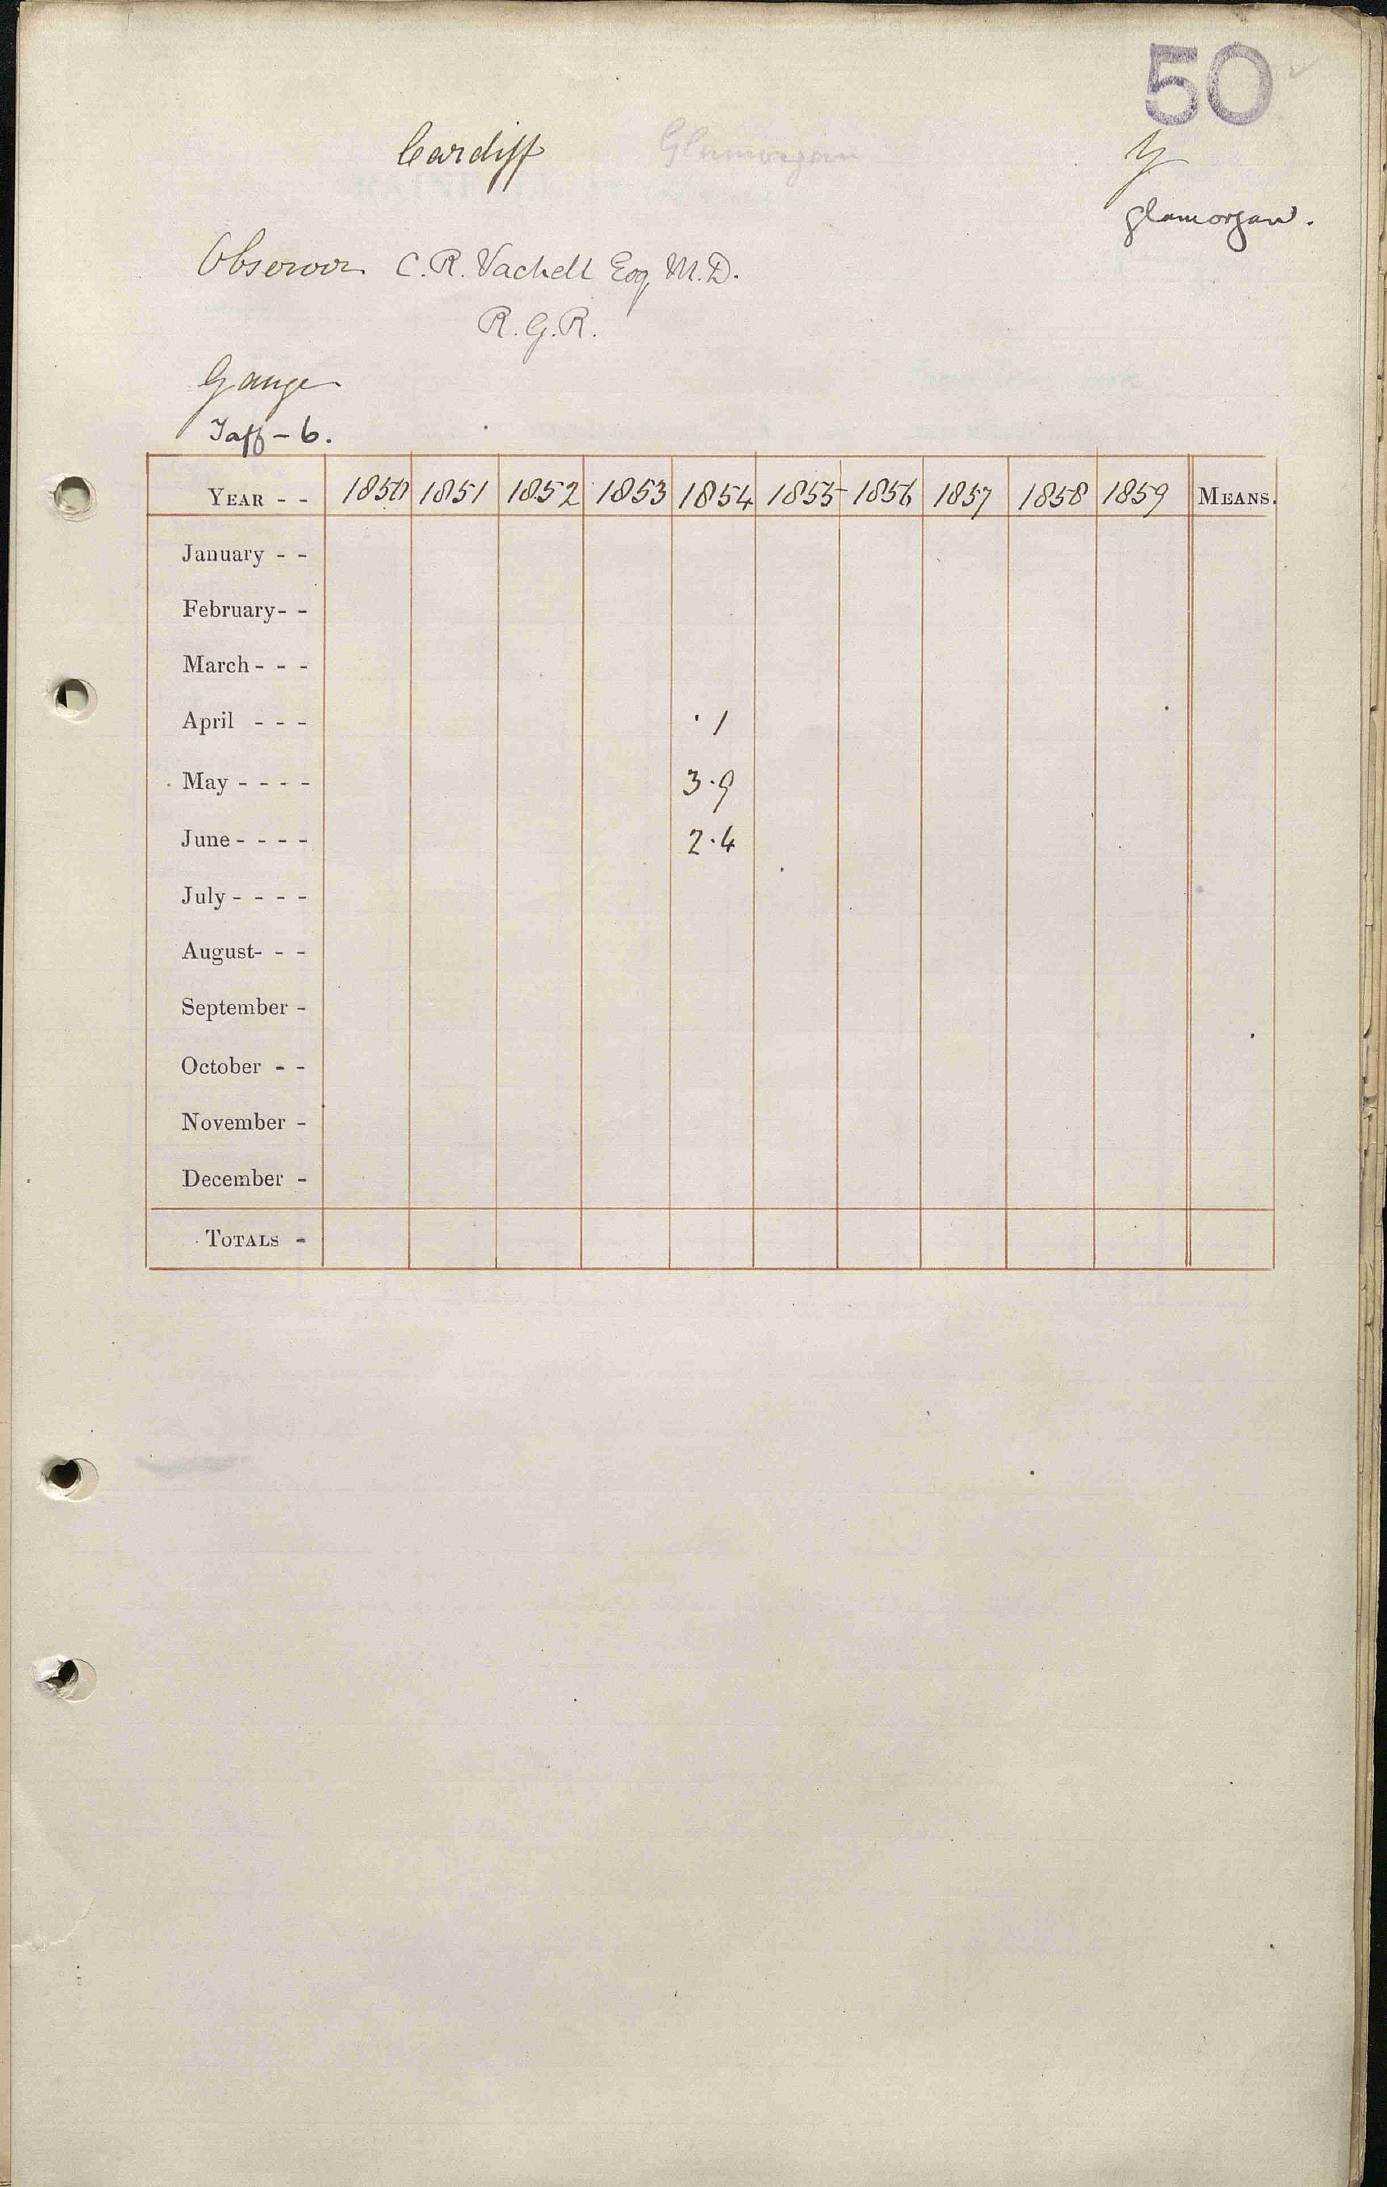 50
Cardiff Glamorgan
Y
Glamorgan.
Observer C. R. Vachell Esq M.D.
R.G.R.
Gauge
Taff - 6.
YEAR - - 1850 1851 1852 1853 1854 1855 1856 1857 1858 1859 MEANS.
January - -
February - -
March - - -
April - - - ·1
May - - - - 3·9
June - - - - 2·4
July - - - -
August - - -
September -
October - -
November -
December -
TOTALS -